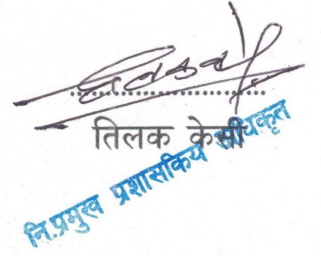 तिलक केसी
नि.प्रमुख प्रशासकिय अधिकृत